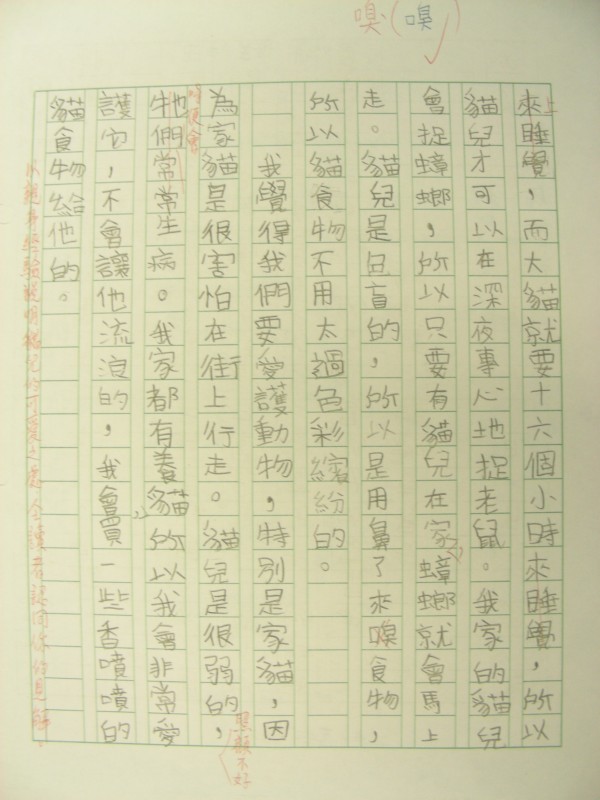 嗅(嗅)
來上睡覺，而大貓就要十六個小時來睡覺，所以
貓兒才可以在深夜專心地捉老鼠。我家的貓兒
會捉蟑螂，所以只要有貓兒在家蟑螂就會馬上
走。貓兒是色盲的，所以是用鼻了來嗅食物，
所以貓食物不用太過色彩繽紛的。
我覺得我們要愛護動物，特別是家貓，因
為家貓是很害怕在街上行走。貓兒是很弱的，
照顧不好
時便會
牠們常常生病。我家都有養貓所以我會非常愛
護它，不會讓他流浪的，我會買一些香噴噴的
貓食物給他的。
以親身經驗說明貓兒的可愛之處，令讀者認同你的見解。